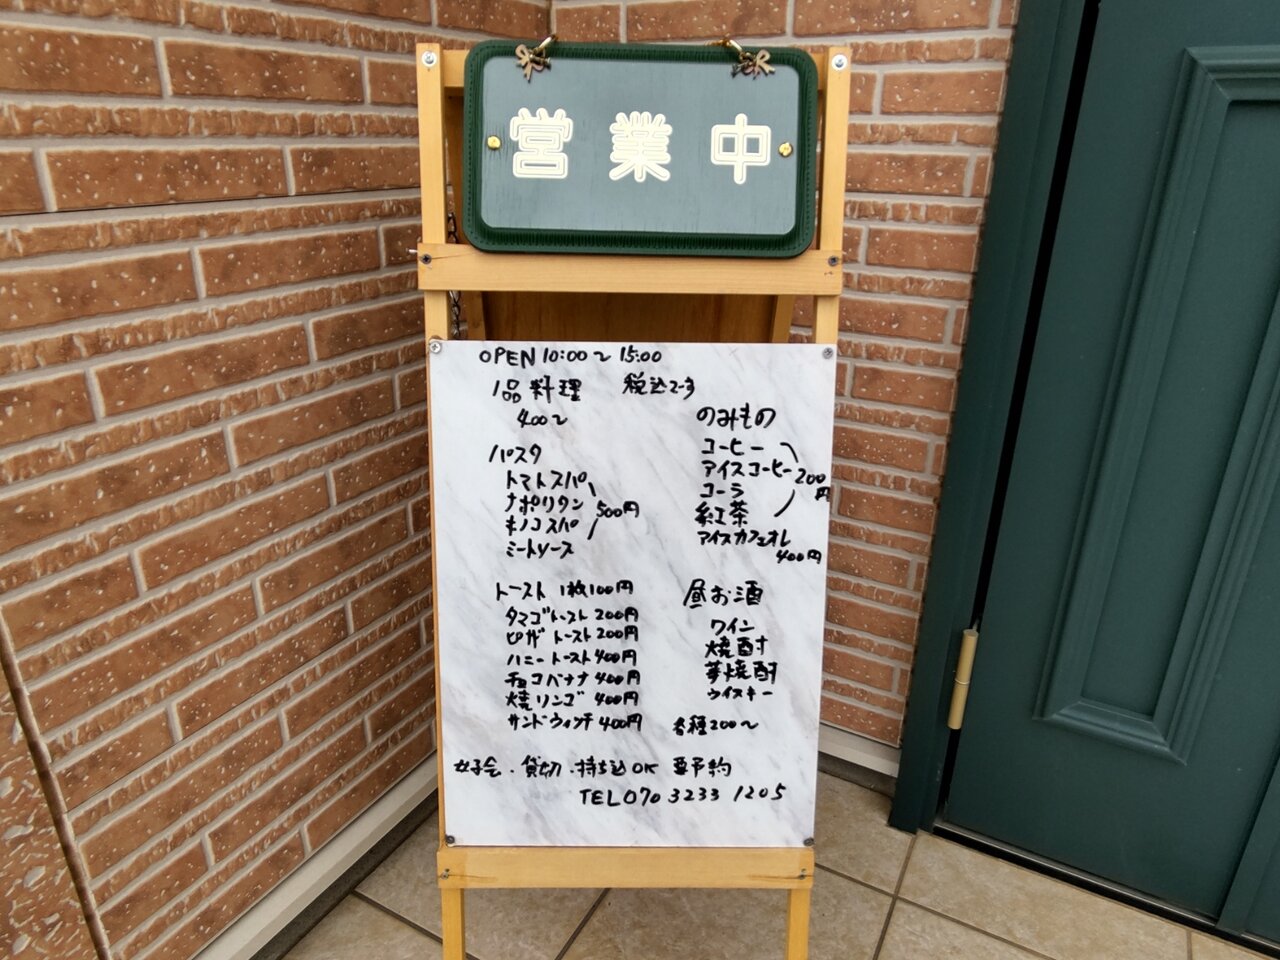 営業中
OPEN 10:00〜15:00
1品料理 税込です
400〜
パスタ
トマトスパ
ナポリタン
キノコスパ
500円
ミートソース
トースト 1枚100円
タマゴトースト 200円
ピザトースト 200円
ハニートースト 400円
チョコバナナ 400円
焼リンゴ 400円
サンドウィッチ 400円
のみもの
コーヒー
アイスコーヒー
コーラ
紅茶
200円
アイスカフェオレ
400円
昼お酒
ワイン
焼酎
芋焼酎
ウイスキー
各種200〜
女子会・貸切・持ち込OK 要予約
TEL 070 3233 1205